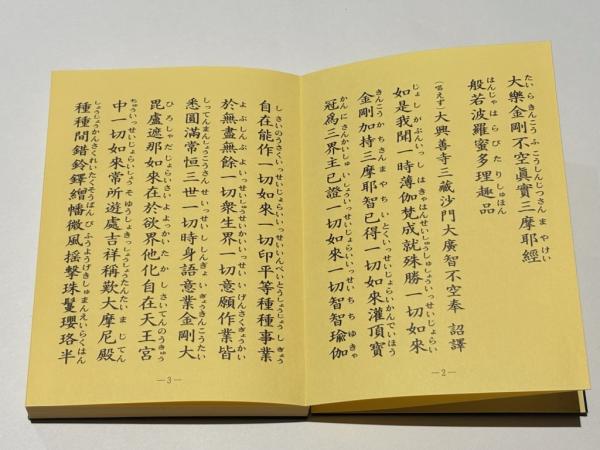 大樂金剛不空眞實三摩耶經
般若波羅蜜多理趣品
(唱えず)大興善寺三藏沙門大廣智不空奉 詔譯
如是我聞一時薄伽梵成就殊勝一切如來
金剛加持三摩耶智已得一切如來灌頂寶
冠爲三界主已證一切如來一切智智瑜伽
—2—
自在能作一切如來一切印平等種種事業
於無盡無餘一切衆生界一切意願作業皆
悉圓滿常恒三世一切時身語意業金剛大
毘盧遮那如來在於欲界他化自在天王宮
中一切如來常所遊處吉祥稱歎大摩尼殿
種種間錯鈴鐸繒幡微風搖擊珠鬘瓔珞半
—3—